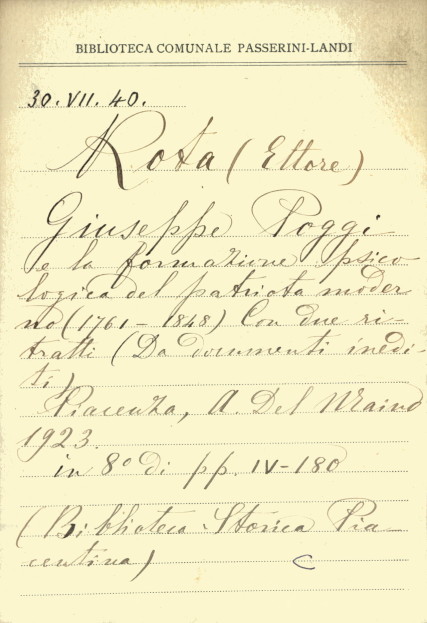 BIBLIOTECA COMUNALE PASSERINI-LANDI
30.VII.40.
Rota (Ettore)
Giuseppe Poggi
e la formazione psico
logica del patriota moder
no (1761-1848) Con due ri-
tratti (Da documenti inedi-
ti)
Piacenza, A. Del Maino
1923.
in 8º di pp. IV-180
(Biblioteca Storica Pia-
centina)
C